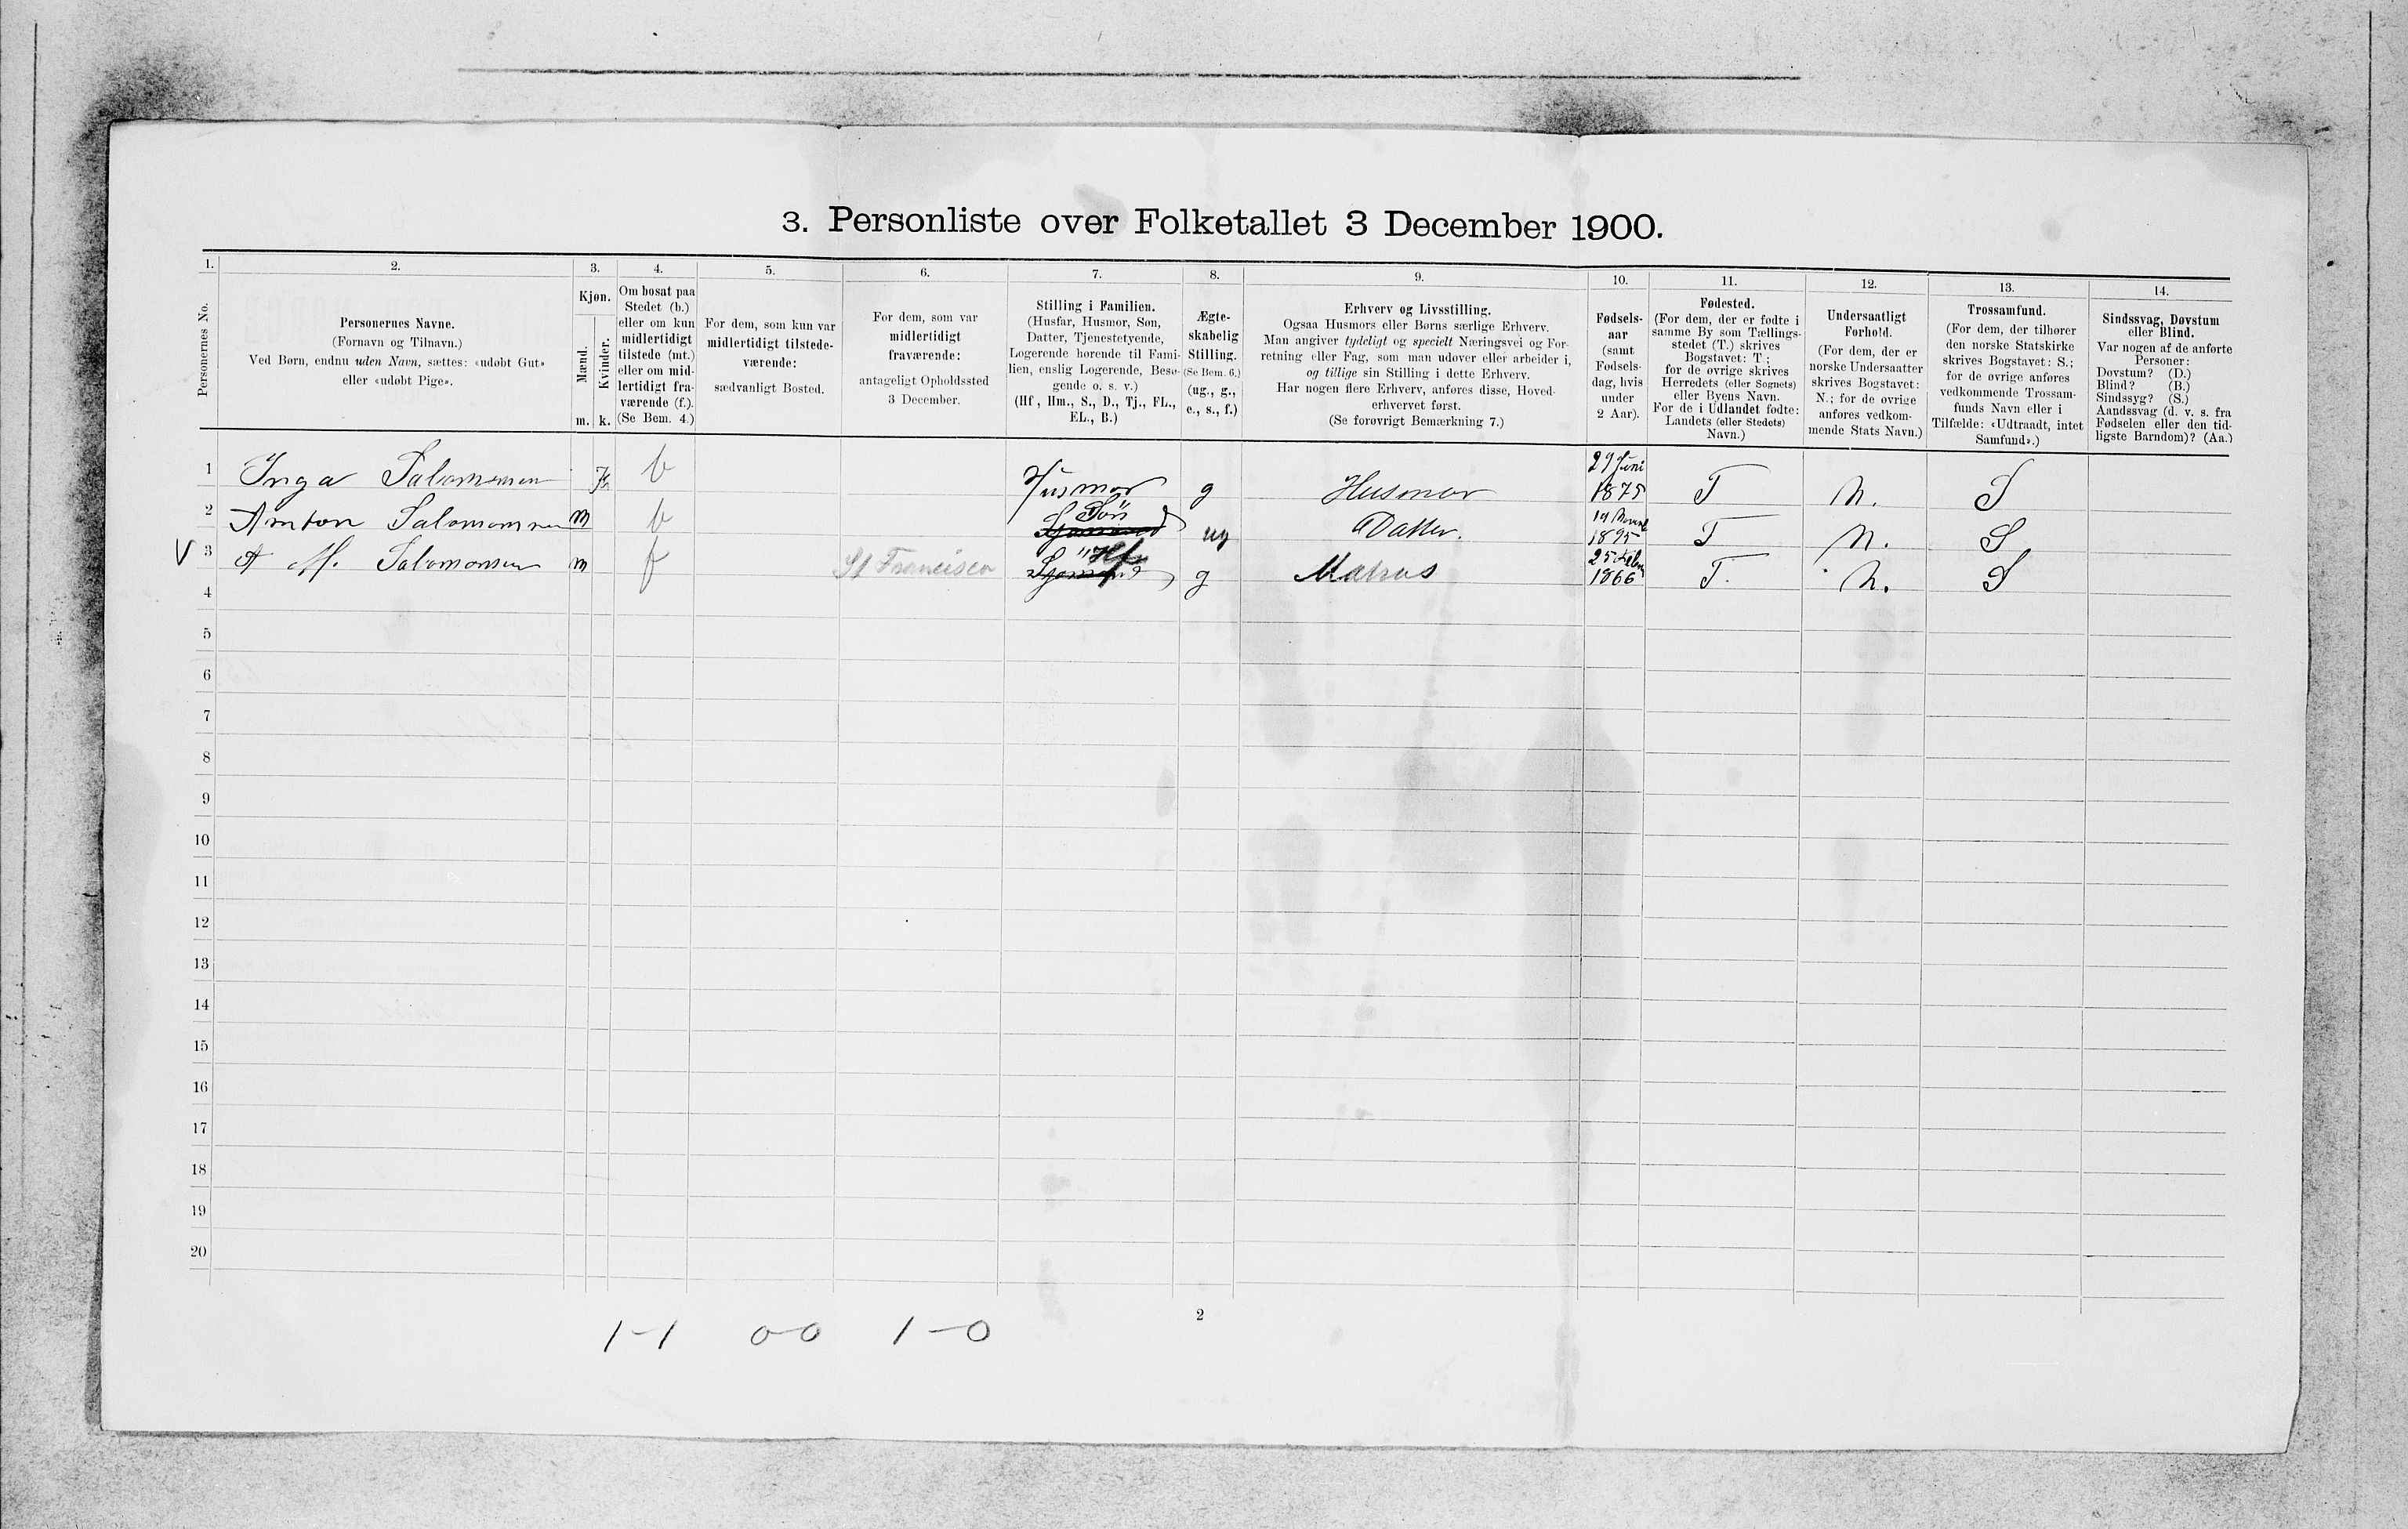 3. Personliste over Folketallet 3 December 1900.
1. 2. 3. 4. 5. 6. 7. 8. 9. 10. 11. 12. 13. 14.
Personernes No.
Personernes Navne.
(Fornavn og Tilnavn.)
Ved Børn, endnu uden Navn, sættes: «udøbt Gut»
eller «udøbt Pige».
Kjøn.
Mænd.
Kvinder.
m. k.
Om bosat paa
Stedet (b.)
eller om kun
midlertidigt
tilstede (mt.)
eller om mid-
lertidigt fra-
værende (f.).
(Se Bem. 4.)
For dem, som kun var
midlertidigt tilstede-
værende:
sædvanligt Bosted.
For dem, som var
midlertidigt
fraværende:
antageligt Opholdssted
3 December.
Stilling i Familien.
(Husfar, Husmor, Søn,
Datter, Tjenestetyende,
Logerende hørende til Fami-
lien, enslig Logerende, Besø-
gende o. s. v.)
(Hf, Hm., S., D., Tj., FL.,
EL., B.)
Ægte-
skabelig
Stilling.
(Se Bem. 6.)
(ug., g.,
e., s., f.)
Erhverv og Livsstilling.
Ogsaa Husmors eller Børns særlige Erhverv.
Man angiver tydeligt og specielt Næringsvei og For-
retning eller Fag, som man udøver eller arbeider i,
og tillige sin Stilling i dette Erhverv.
Har nogen flere Erhverv, anføres disse, Hoved-
erhvervet først.
(Se forøvrigt Bemærkning 7.)
Fødsels-
aar
(samt
Fødsels-
dag, hvis
under
2 Aar).
Fødested.
(For dem, der er fødte i
samme By som Tællings-
stedet (T.) skrives
Bogstavet: T.;
for de øvrige skrives
Herredets (eller Sognets)
eller Byens Navn.
For de i Udlandet fødte:
Landets (eller Stedets)
Navn.)
Undersaatligt
Forhold.
(For dem, der er
norske Undersaatter
skrives Bogstavet:
N.; for de øvrige
anføres vedkom-
mende Stats Navn.)
Trossamfund.
(For dem, der tilhører
den norske Statskirke
skrives Bogstavet: S.;
for de øvrige anføres
vedkommende Trossam-
funds Navn eller i
Tilfælde: «Udtraadt, intet
Samfund».)
Sindssvag, Døvstum
eller Blind.
Var nogen af de anførte
Personer:
Døvstum? (D.)
Blind? (B.)
Sindssyg? (S.)
Aandssvag (d. v. s. fra
Fødselen eller den tid-
ligste Barndom)? (Aa.)
1 Inga Salomonsen K b Husmor g Husmor 29 Juni 1875 T N. S
2 Anton Salomonsen m b Søn ug Datter. 1895 T N. S
V 3 A M. Salomonsen m f St Francisco Hf g Matros 25 Febr 1866 T. N. S
4
5
6
7
8
9
10
11
12
13
14
15
16
17
18
19
20
2
1-1 0-0 1-0